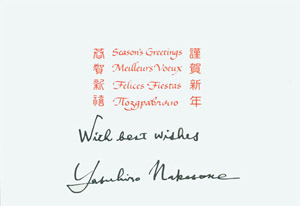 恭賀新禧
Season's Greetings
Meilleurs Voeux
Felices Fiestas
Поздравляю
謹賀新年
With best wishes
Yasuhiro Nakasone